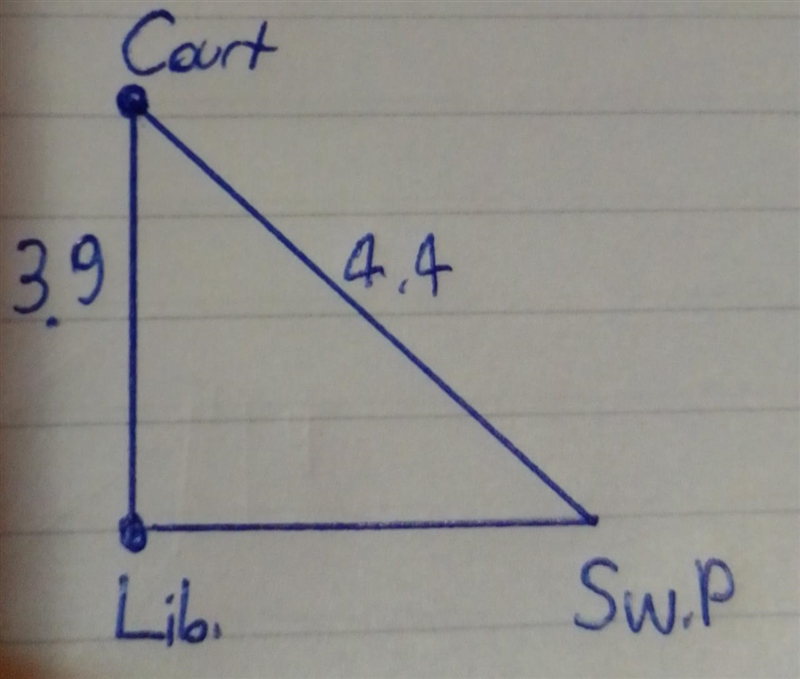 Court
3.9
4.4
Lib.
Sw.P